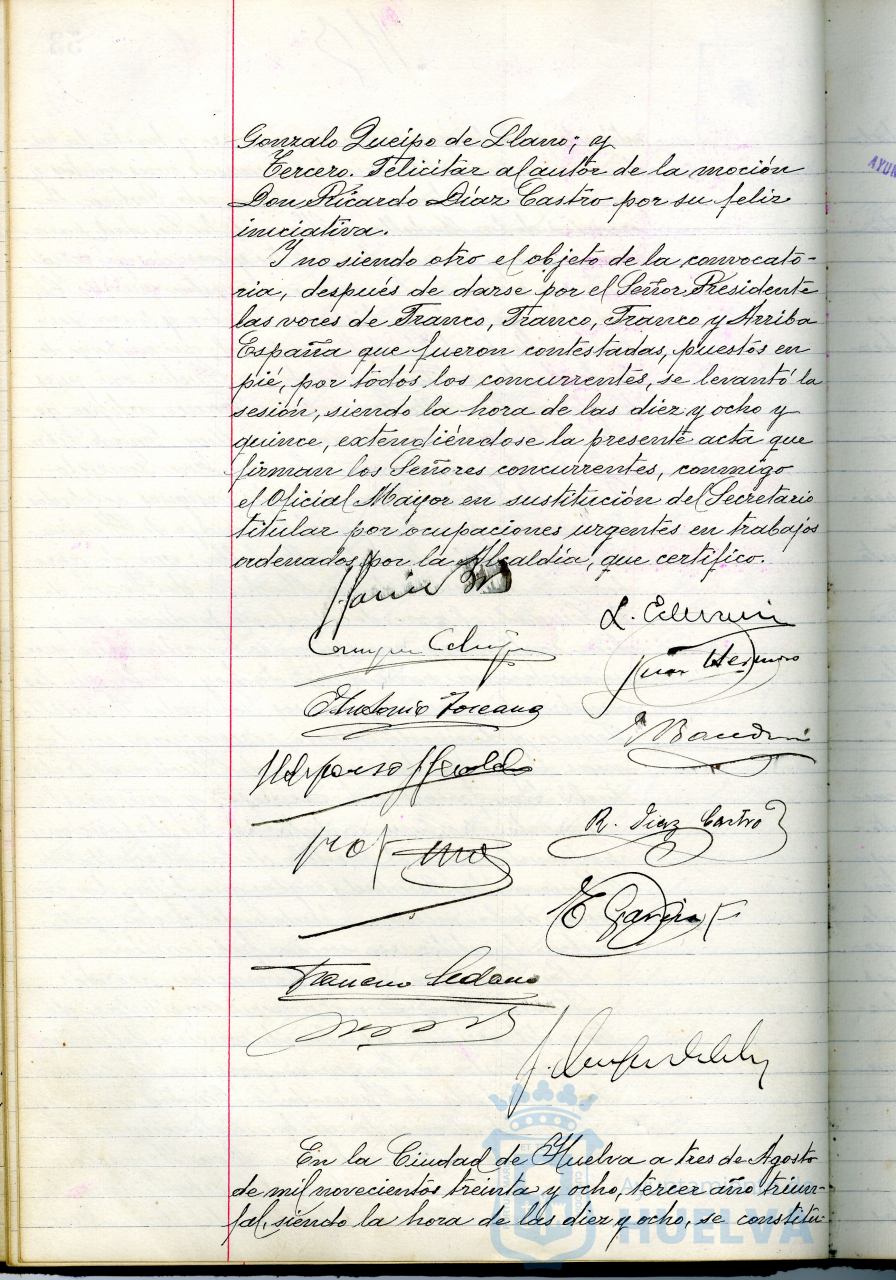 Gonzalo Queipo de Llano; y
Tercero. Felicitar al autor de la moción
Don Ricardo Díaz Castro por su feliz
iniciativa.
Y no siendo otro el objeto de la convocato-
ria, después de darse por el Señor Presidente
las voces de Franco, Franco, Franco y Arriba
España que fueron contestadas, puestos en
pié, por todos los concurrentes, se levantó la
sesión, siendo la hora de las diez y ocho y
quince, extendiéndose la presente acta que
firman los Señores concurrentes, conmigo
el Oficial Mayor en sustitución del Secretario
titular por ocupaciones urgentes en trabajos
ordenados por la Alcaldía, que certifico.
Antonio Toscano
R. Diaz Castro
E Garcia
Francisco Sedano
En la Ciudad de Huelva a tres de Agosto
de mil novecientos treinta y ocho, tercer año triun-
fal, siendo la hora de las diez y ocho, se constitu-
Ayuntamiento de
HUELVA
AYUN